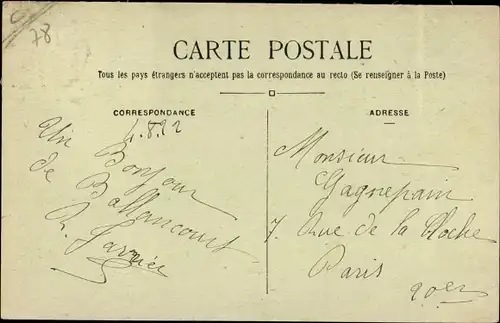 78
CARTE POSTALE
Tous les pays étrangers n'acceptent pas la correspondance au recto (Se renseigner à la Poste)
CORRESPONDANCE
ADRESSE
4.8.22
Un Bonjour
de Ballancourt
R. Garnier
Monsieur
Gagnepain
7, Rue de la
Paris
20er